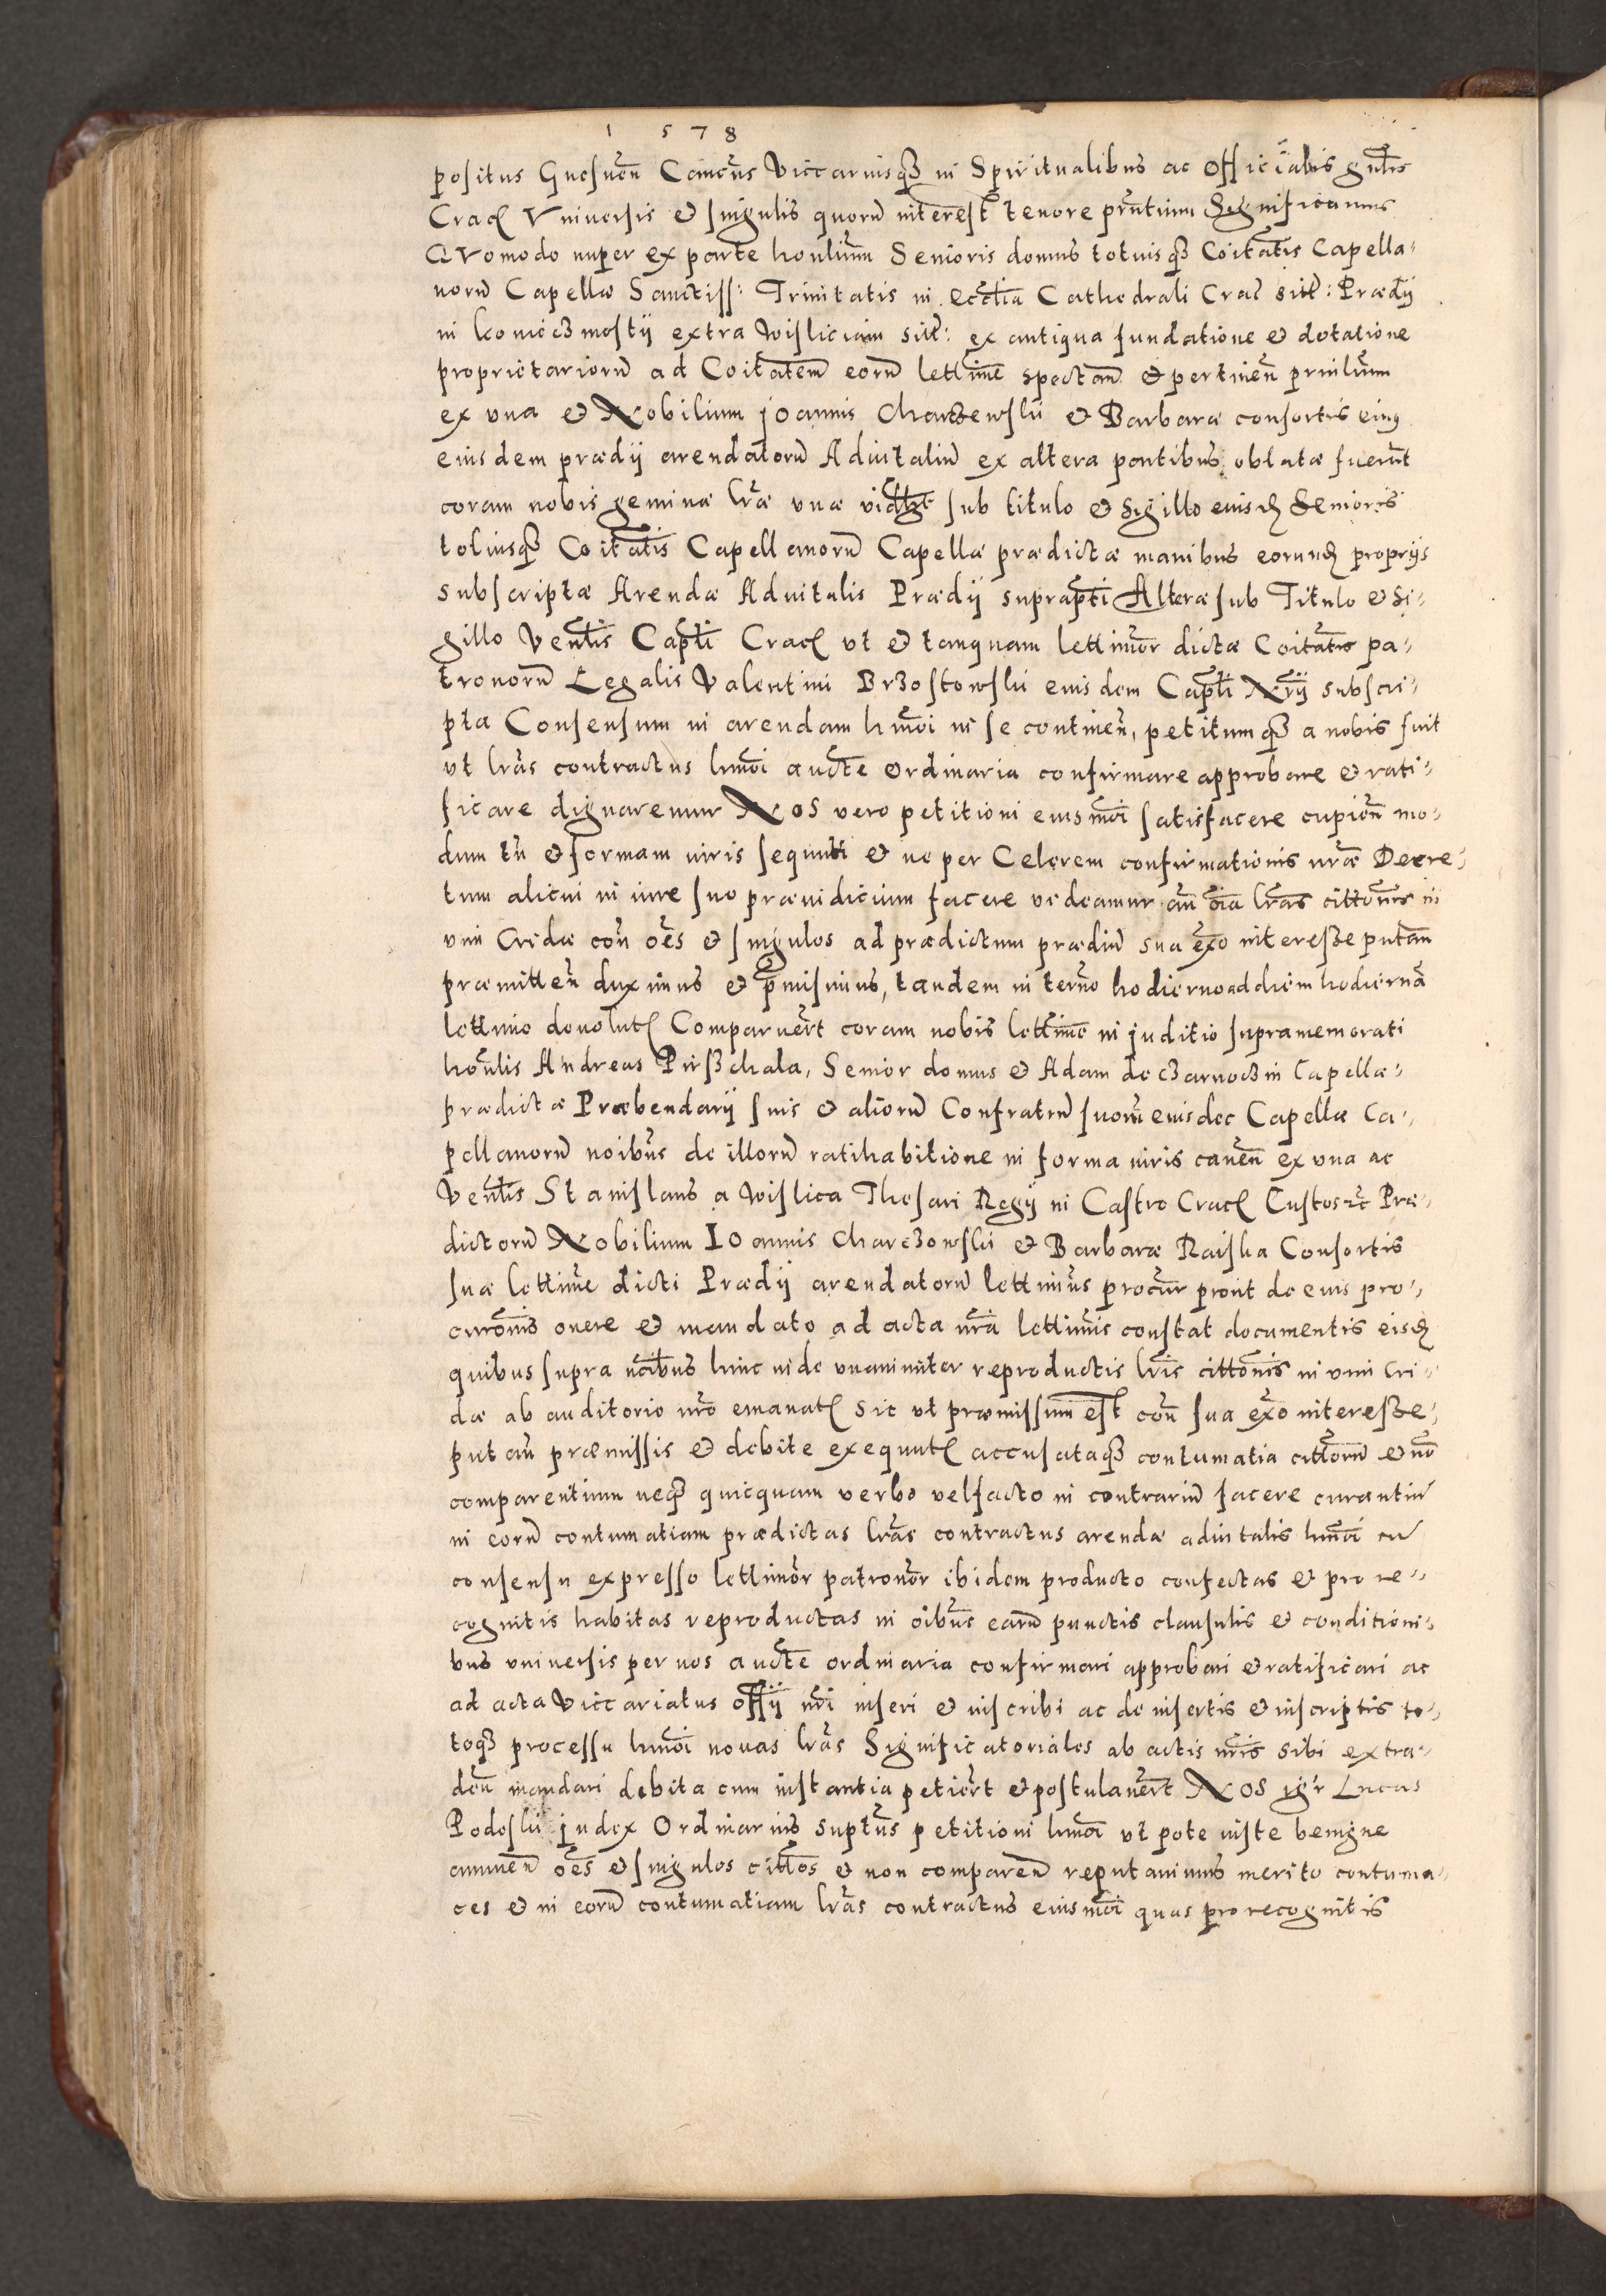 1 5 7 8
positus Gnesnen̄ Canc̄us Viccariusqȝ in Spiritualibus ac Officialis gn̄lis
Crac̄ Vniuersis et singulis quorū interest tenore pn̄tium Significamus
QVomodo nuper ex parte honlium Senioris domus totiusqȝ Coitatis Capella-
norū Capellæ Sanctiss: Trinitatis in ecclīa Cathedrali Crac̄ sitæ: Prædij
in koniecȝmostij extra Wisliciam sitī: ex antiqua fundatione et dotatione
proprietariorū ad Coitatem eorū lettīme spectan̄ et pertinen̄ perutilium
ex vna et Nobilium joannis Charzewskii et Barbaræ consortis eius
eiusdem prædij arendatorū Aduitaliū ex altera partibus oblatæ fuerūt
coram nobis geminæ lr̄æ vnæ vidȝt sub titulo et Sigillo eiusd̄ Senioris
totiusqȝ Coitatis Capellanorū Capellæ prædictæ manibus eorund̄ proprijs
subscriptæ Arendæ Aduitalis Prædij suprap̄ti Alteræ sub Titulo et Si-
gillo Ven̄lis Capl̄i Crac̄ vt et tanquam lettimōr dictæ Coitatis pa-
tronorū Legalis Valentini Brȝostowskii eiusdem Capl̄i Nr̄ij subscri-
pta Consensum in arendam hm̄oi in se continen̄, petitumqȝ a nobis fuit
vt lr̄as contractus hm̄oi auctte ordinaria confirmare approbare et rati-
ficare dignaremur Nos vero petitioni eiusmōi satisfacere cupien̄ mo-
dum tn̄ et formam iuris sequuti et ne per Celerem confirmationis nr̄æ Decre-
tum alicui in iure suo præiudicium facere videamur an̄ oīa lr̄as cittōnis in
vim Cridæ con̄ oēs et singulos ad prædictum prædiū sua exō interesse putan̄
præmitten̄ duximus et p̄misimus, tandem in termō hodierno ad diem hodiernā
lettime deuolut̄ Comparuer̄t coram nobis lettīme in juditio supramemorati
hon̄lis Andreas Pirßchala, Senior domus et Adam de cȝarnocȝin Capellæ-
prædictæ Præbendarij suis et aliorū Confratrū suorū eiusdec Capellæ Ca-
pellanorū noibus de illorū ratihabitione in forma iuris cauen̄ ex vna ac
Ven̄lis Stanislaus a Wislica Thesari Regij in Castro Crac̄ Custos ɛc Præ-
dictorū Nobilium Ioannis Charcȝowskii et Barbaræ Raiska Consortis
suæ lettīme dicti Prædij arendatorū lettimus procur̄ prout de eius pro-
curōnis onere et mandato ad acta nr̄a lettimis constat documentis eisd̄
quibus supra noībus hinc inde vnanimiter reproductis lr̄is cittōnis in vim Cri-
dæ ab auditorio nr̄o emanat̄ Sic vt præmissum est con̄ sua exō interesse
putan̄ præmissis et debite exequut̄ accusataqȝ contumatia cittorū et nō
comparentium neqȝ quicquam verbo vel facto in contrariū facere curantiū
in eorū contumatiam prædictas lr̄as contractus arendæ aduitalis hm̄oi cū
consensu expresso lettimōr patronōr ibidem producto confectas et pro re-
cognitis habitas reproductas in oibus earū punctis clausulis et conditioni-
bus vniuersis per nos auctte ordinaria confirmari approbari et ratificari ac
ad acta Viccariatus offij nr̄i inseri et inscribi ac de insertis et inscriptis to-
toqȝ processu hm̄oi nouas lr̄as Significatoriales ab actis nr̄is sibi extra-
den̄ mandari debita cum instantia petier̄t et postulauer̄t Nos igr̄ Lucas
Podoskii judex Ordinarius supt̄us petitioni hm̄oi vt pote iuste benigne
annuen̄ oēs et singulos cittos et non comparen̄ reputauimus merito contuma-
ces et in eorū contumatiam lr̄as contractus eiusmōi quas pro recognitis